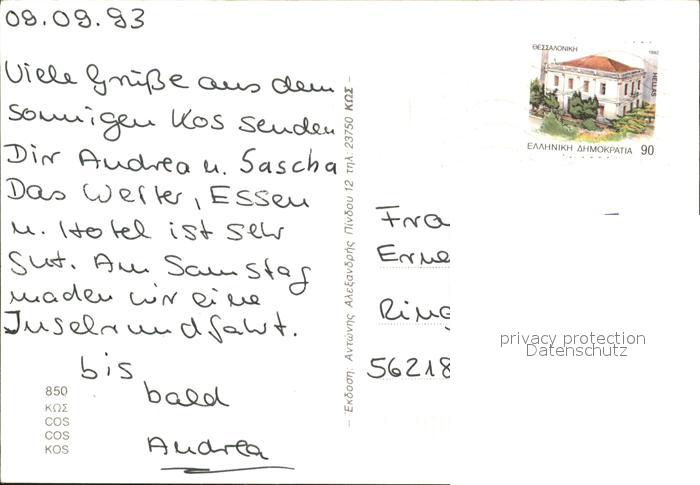 09.09.93
Viele Grüße aus dem
sonnigen Kos senden
Dir Andrea u. Sascha
Das Wetter, Essen
u. Hotel ist sehr
gut. Am Samstag
machen wir eine
Inselrundfahrt.
bis
bald
Andrea
850
ΚΩΣ
COS
COS
KOS
– Έκδοση: Αντώνης Αλεξανδρής Πίνδου 12 τηλ. 23750 ΚΩΣ –
ΘΕΣΣΑΛΟΝΙΚΗ
1992
HELLAS
ΕΛΛΗΝΙΚΗ ΔΗΜΟΚΡΑΤΙΑ 90
Fra
Erne
Ring
56218
privacy protection
Datenschutz